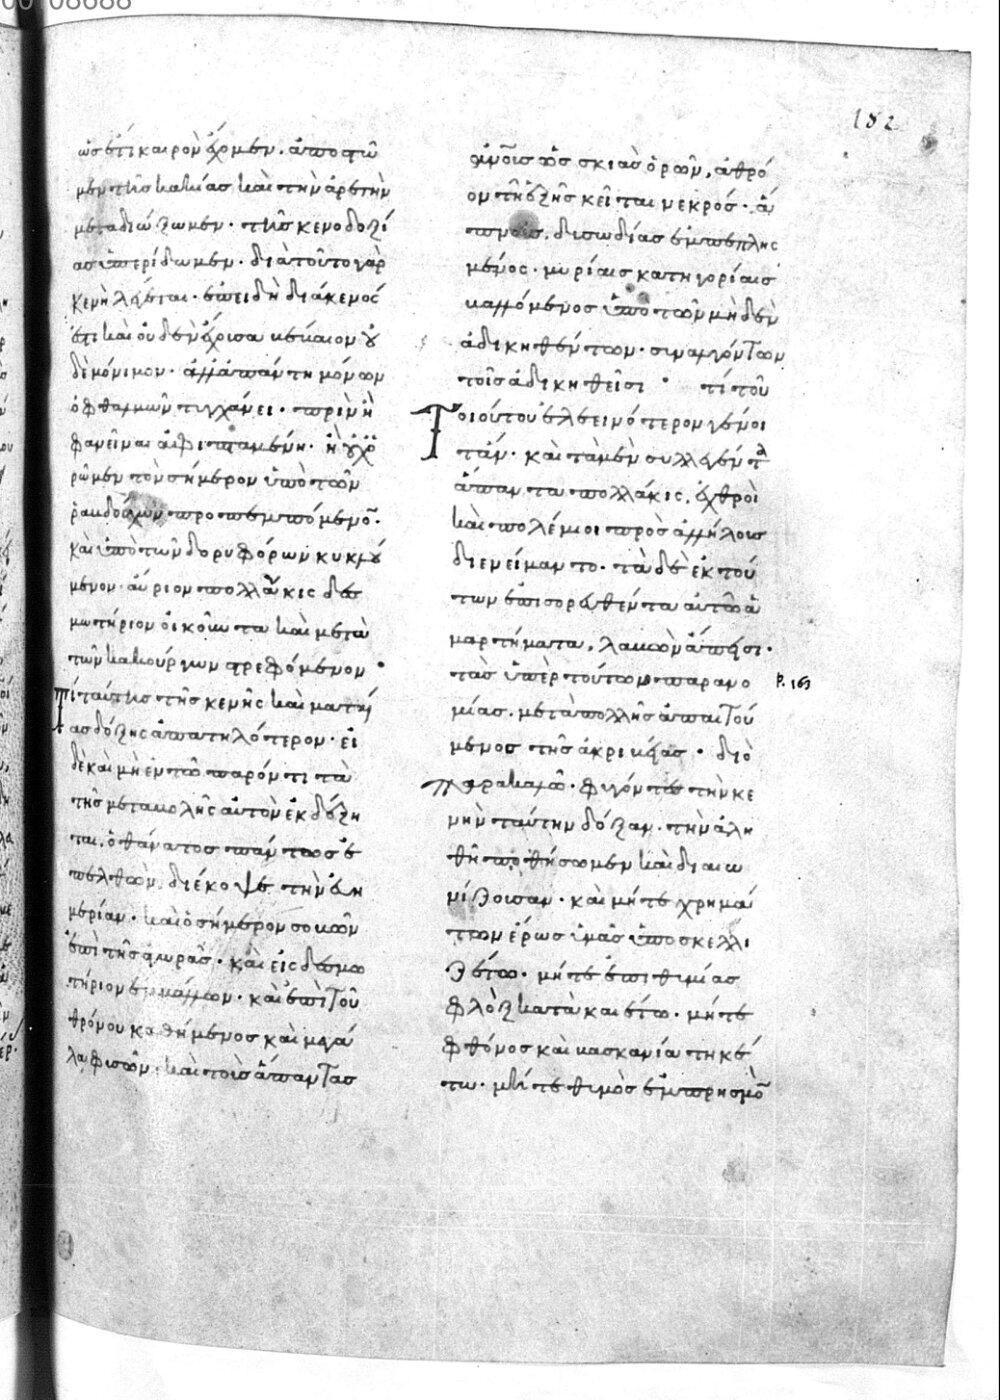 182
ὡς ἔτι καιρὸν ἔχομεν. ἀποστῶ
μεν τῆς κακίας καὶ τὴν ἀρετὴν
μεταδιώξωμεν. τῆς κενοδοξί
ας ὑπερίδωμεν. διὰ τοῦτο γὰρ
κενὴ λέγεται. ἐπειδὴ διάκενός
ἐστι καὶ οὐδὲν ἔχουσα βέβαιον οὐ
δὲ μόνιμον. ἀλλ' ἀπαντη μόνων
ὀφθαλμῶν τυγχάνει. πρὶν ἢ
φανεῖναι ἀφισταμένη. ἢ οὐχ ὁ
ρῶμεν τὸν σήμερον ὑπὸ τῶν
ῥαβδούχων προπεμπόμενον.
καὶ ὑπὸ τῶν δορυφόρων κυκλού
μενον. αὔριον πολλάκις δεσ
μωτήριον οἰκοῦντα καὶ μετὰ
τῶν κακούργων τρεφόμενον.
Τί ταύτης τῆς κενῆς καὶ ματαί
ας δόξης ἀπατηλότερον. εἰ
δὲ καὶ μὴ ἐν τῷ παρόντι τὰ
τῆς μεταβολῆς αὐτὸν ἐκδέξη
ται. ὁ θάνατος πάντως ἐ
πελθὼν. διέκοψε τὴν εὐη
μερίαν. καὶ ὁ σήμερον σοβῶν
ἐπὶ τῆς ἀγορᾶς. καὶ εἰς δεσμω
τήριον ἐμβάλλων. καὶ ἐπὶ τοῦ
θρόνου καθήμενος καὶ μεγά
λα φυσῶν. καὶ τοὺς ἅπαντας
ἀνθρώπους ὡς σκιὰς ὁρῶν, ἀθρό
ον τῇ ἑξῆς κεῖται νεκρός. ἄ
πνους. δυσωδίας ἐμπεπλησ
μένος. μυρίαις κατηγορίαις
βαλλόμενος ὑπὸ τῶν μηδὲν
ἀδικηθέντων. συναλγόντων
τοῖς ἀδικηθεῖσι. τί τοῦ
Τοιούτου ἐλεεινότερον γένοι
τ' ἄν. καὶ τὰ μὲν συλλεγέντα
ἅπαντα πολλάκις. ἐχθροὶ
καὶ πολέμιοι πρὸς ἀλλήλους
διενείμαντο. τὰ δὲ ἐκ τού
των ἐπισωρευθέντα αὐτῷ ἁ
μαρτήματα, λαβὼν ἄπεισι.
τὰς ὑπὲρ τούτων παρανο P. 163
μίας. μετὰ πολλῆς ἀπαιτού
μενος τῆς ἀκριβείας. διὸ
Παρακαλῶ. φυγόντες τὴν κε
νὴν ταύτην δόξαν. τὴν ἀλη
θῆ ποθήσωμεν καὶ διαιω
νίζουσαν. καὶ μήτε χρημά
των ἔρως ὑμᾶς ὑποσκελι
ζέτω. μήτε ἐπιθυμίας
φλὸξ κατακαιέτω. μήτε
φθόνος καὶ βασκανία τηκέ
τω. μήτε θυμὸς ἐμπρησμὸν